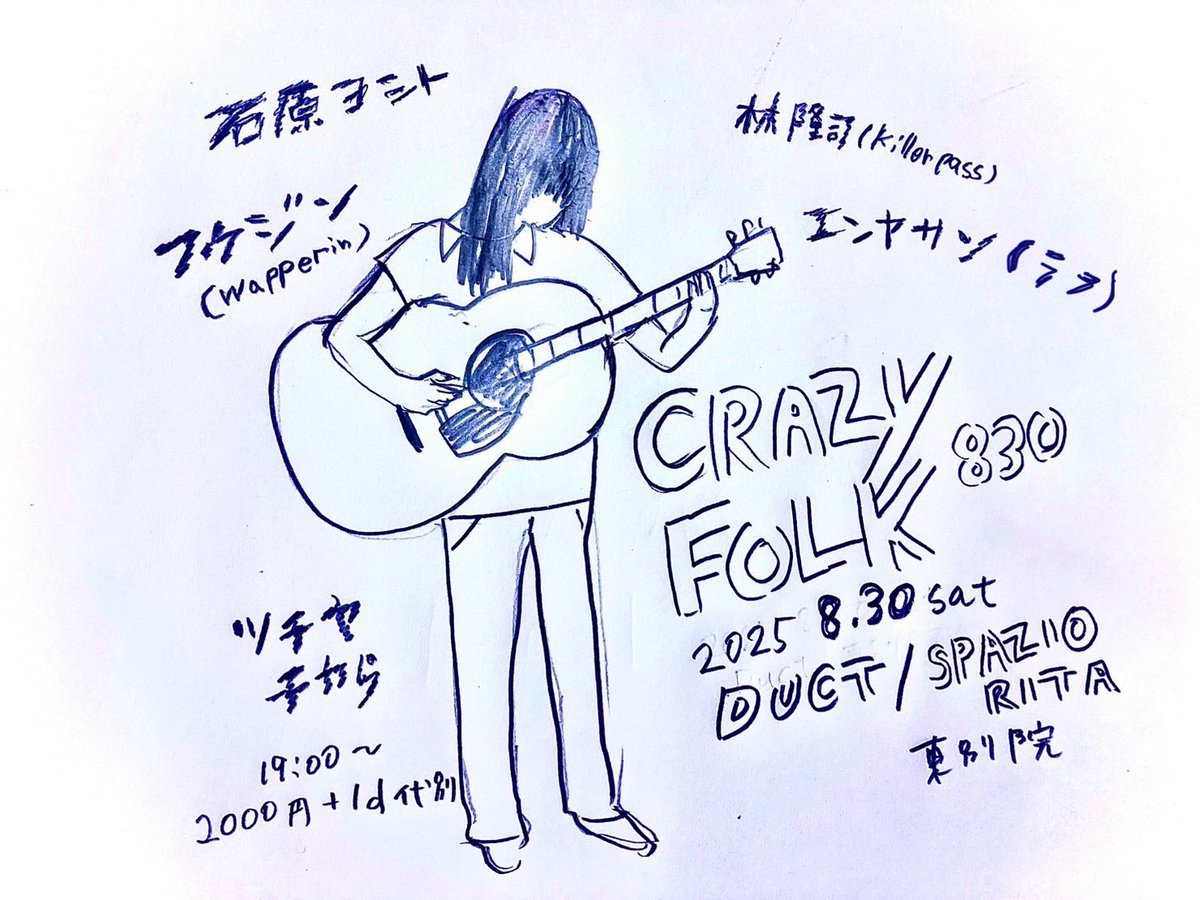 石原ヨシト
フケジン
(Wapperin)
林隆司(Killerpass)
エンヤサン(ララ)
CRAZY
FOLK 830
2025 8.30 sat
DUCT/SPAZIO
RITA
東別院
ツチヤ
19:00～
2000円+1d代別